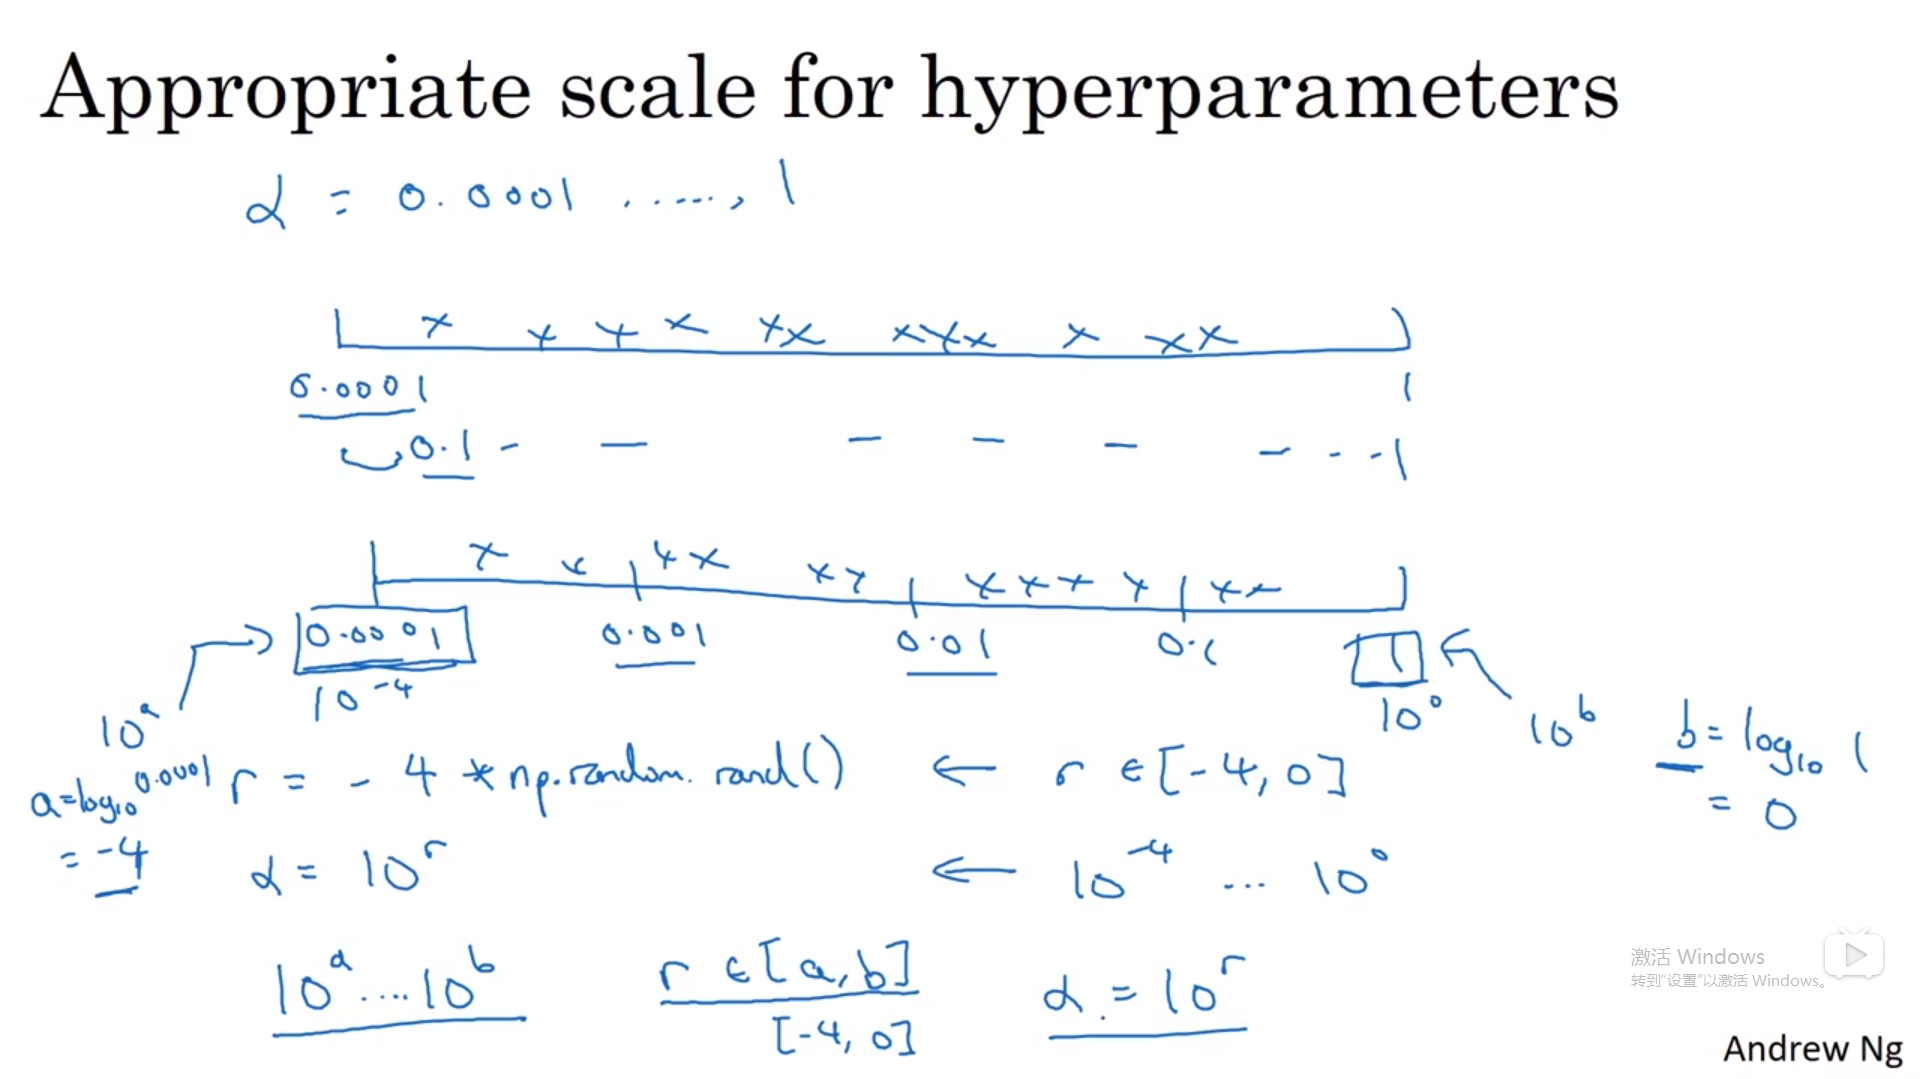 Appropriate scale for hyperparameters
α = 0.0001 ....., 1
0.0001 1
0.1 - — — — — - - - 1
0.0001 0.001 0.01 0.1 1
10^-4 10^0
10^a 10^b b = log₁₀ 1
a = log₁₀ 0.0001 r = - 4 * np.random.rand() ← r ∈ [-4, 0] = 0
= -4 α = 10^r ← 10^-4 ... 10^0
10^a .... 10^b r ∈ [a, b] α = 10^r
[-4, 0]
激活 Windows
转到“设置”以激活 Windows。
Andrew Ng